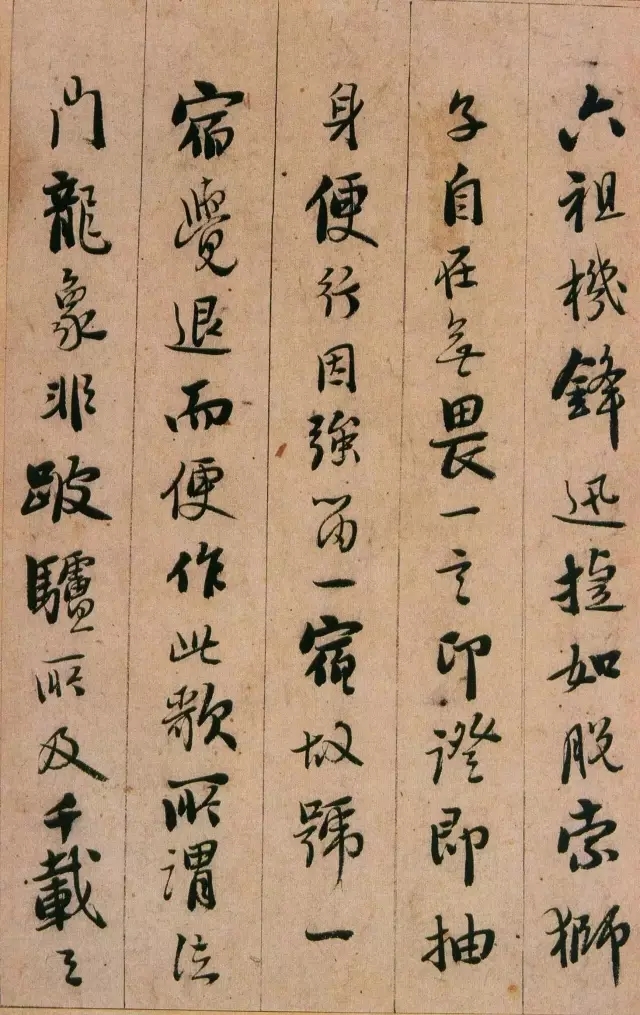 六祖機鋒迅捷如脫索獅
子自在無畏一言印證即抽
身便行因強留一宿故號一
宿覺退而便作此歌所謂法
門龍象非跛驢所及千載之